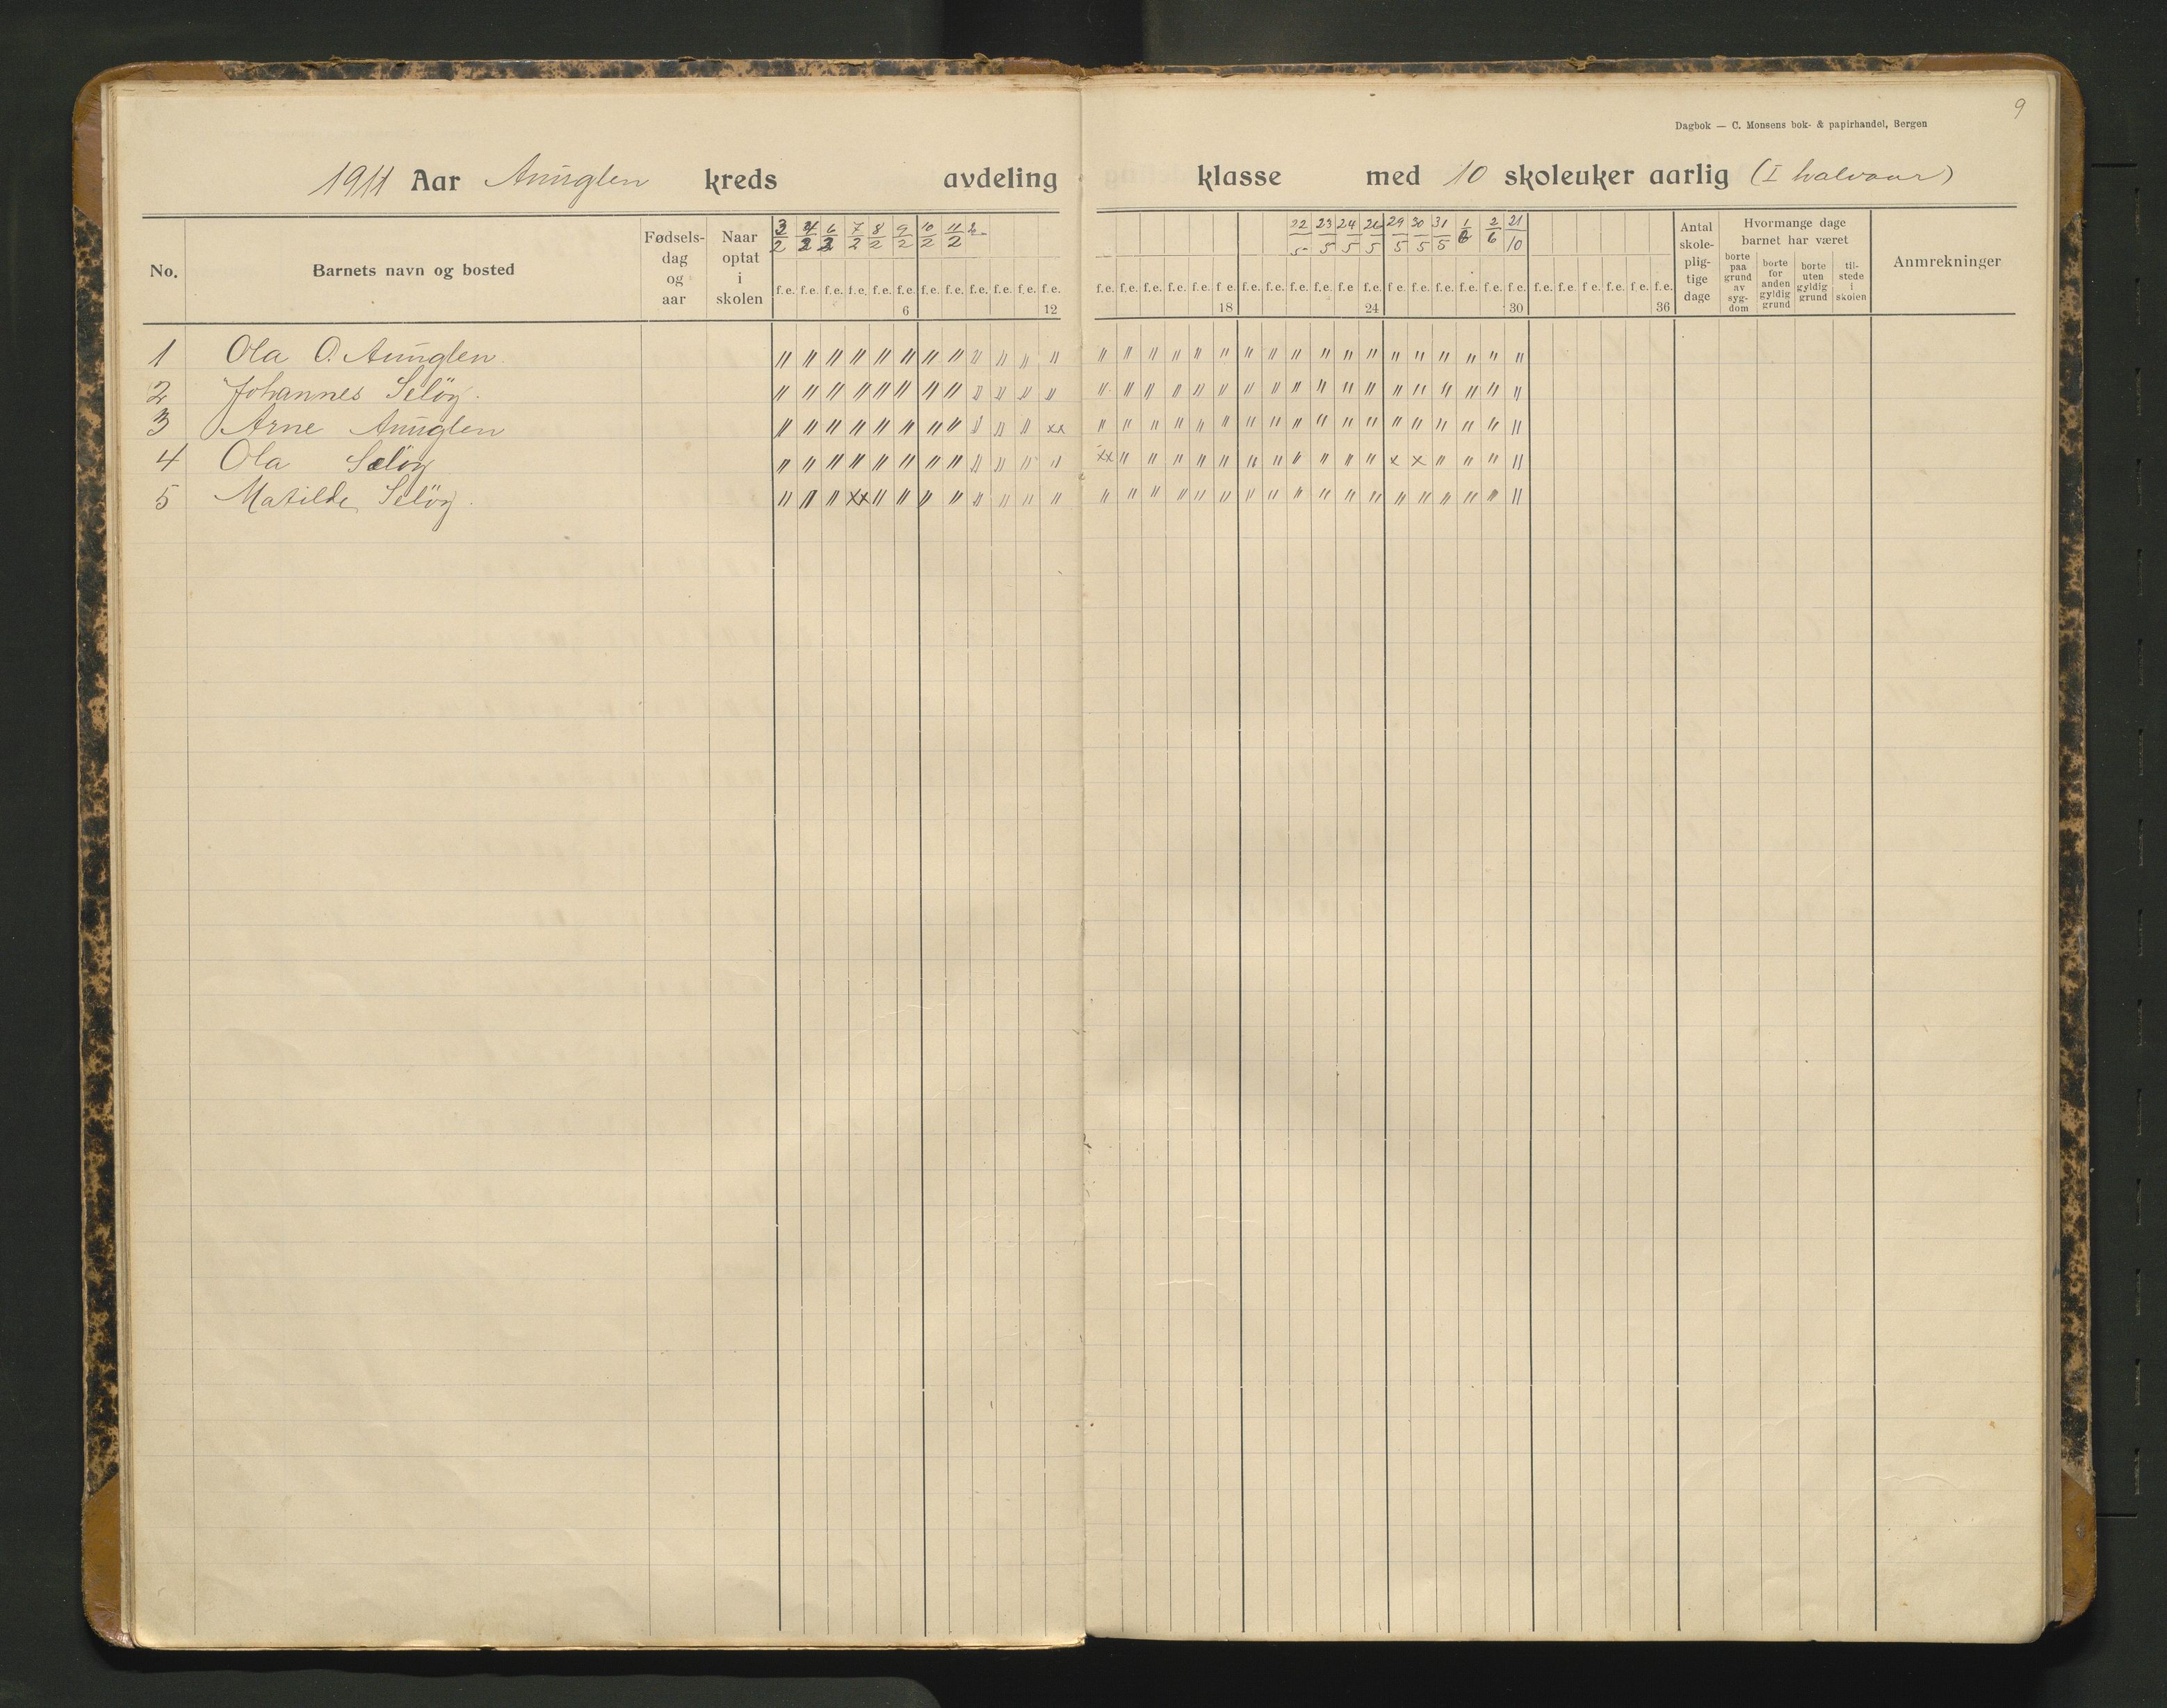 9
Dagbok — C. Monsens bok- & papirhandel, Bergen
1911 Aar Aunglen kreds avdeling klasse med 10 skoleuker aarlig (I halvaar)
No. Barnets navn og bosted Fødsels-dag og aar Naar optat i skolen
3/2 4/2 6/2 7/2 8/2 9/2 10/2 11/2
22/5 23/5 24/5 26/5 29/5 30/5 31/5 1/6 2/6 21/10
f.e. f.e. f.e. f.e. f.e. f.e. f.e. f.e. f.e. f.e. f.e. f.e.
6 12
f.e. f.e. f.e. f.e. f.e. f.e. f.e. f.e. f.e. f.e. f.e. f.e. f.e. f.e. f.e. f.e. f.e. f.e. f.e. f.e. f.e. f.e. f.e. f.e.
18 24 30 36
Antal skole-plig-tige dage
Hvormange dage barnet har været
borte paa grund av syg-dom
borte for anden gyldig grund
borte uten gyldig grund
til-stede i skolen
Anmrekninger
1 Ola O. Aunglen.
2 Johannes Selöy.
3 Arne Aunglen
4 Ola Selöy
5 Matilde Selöy.